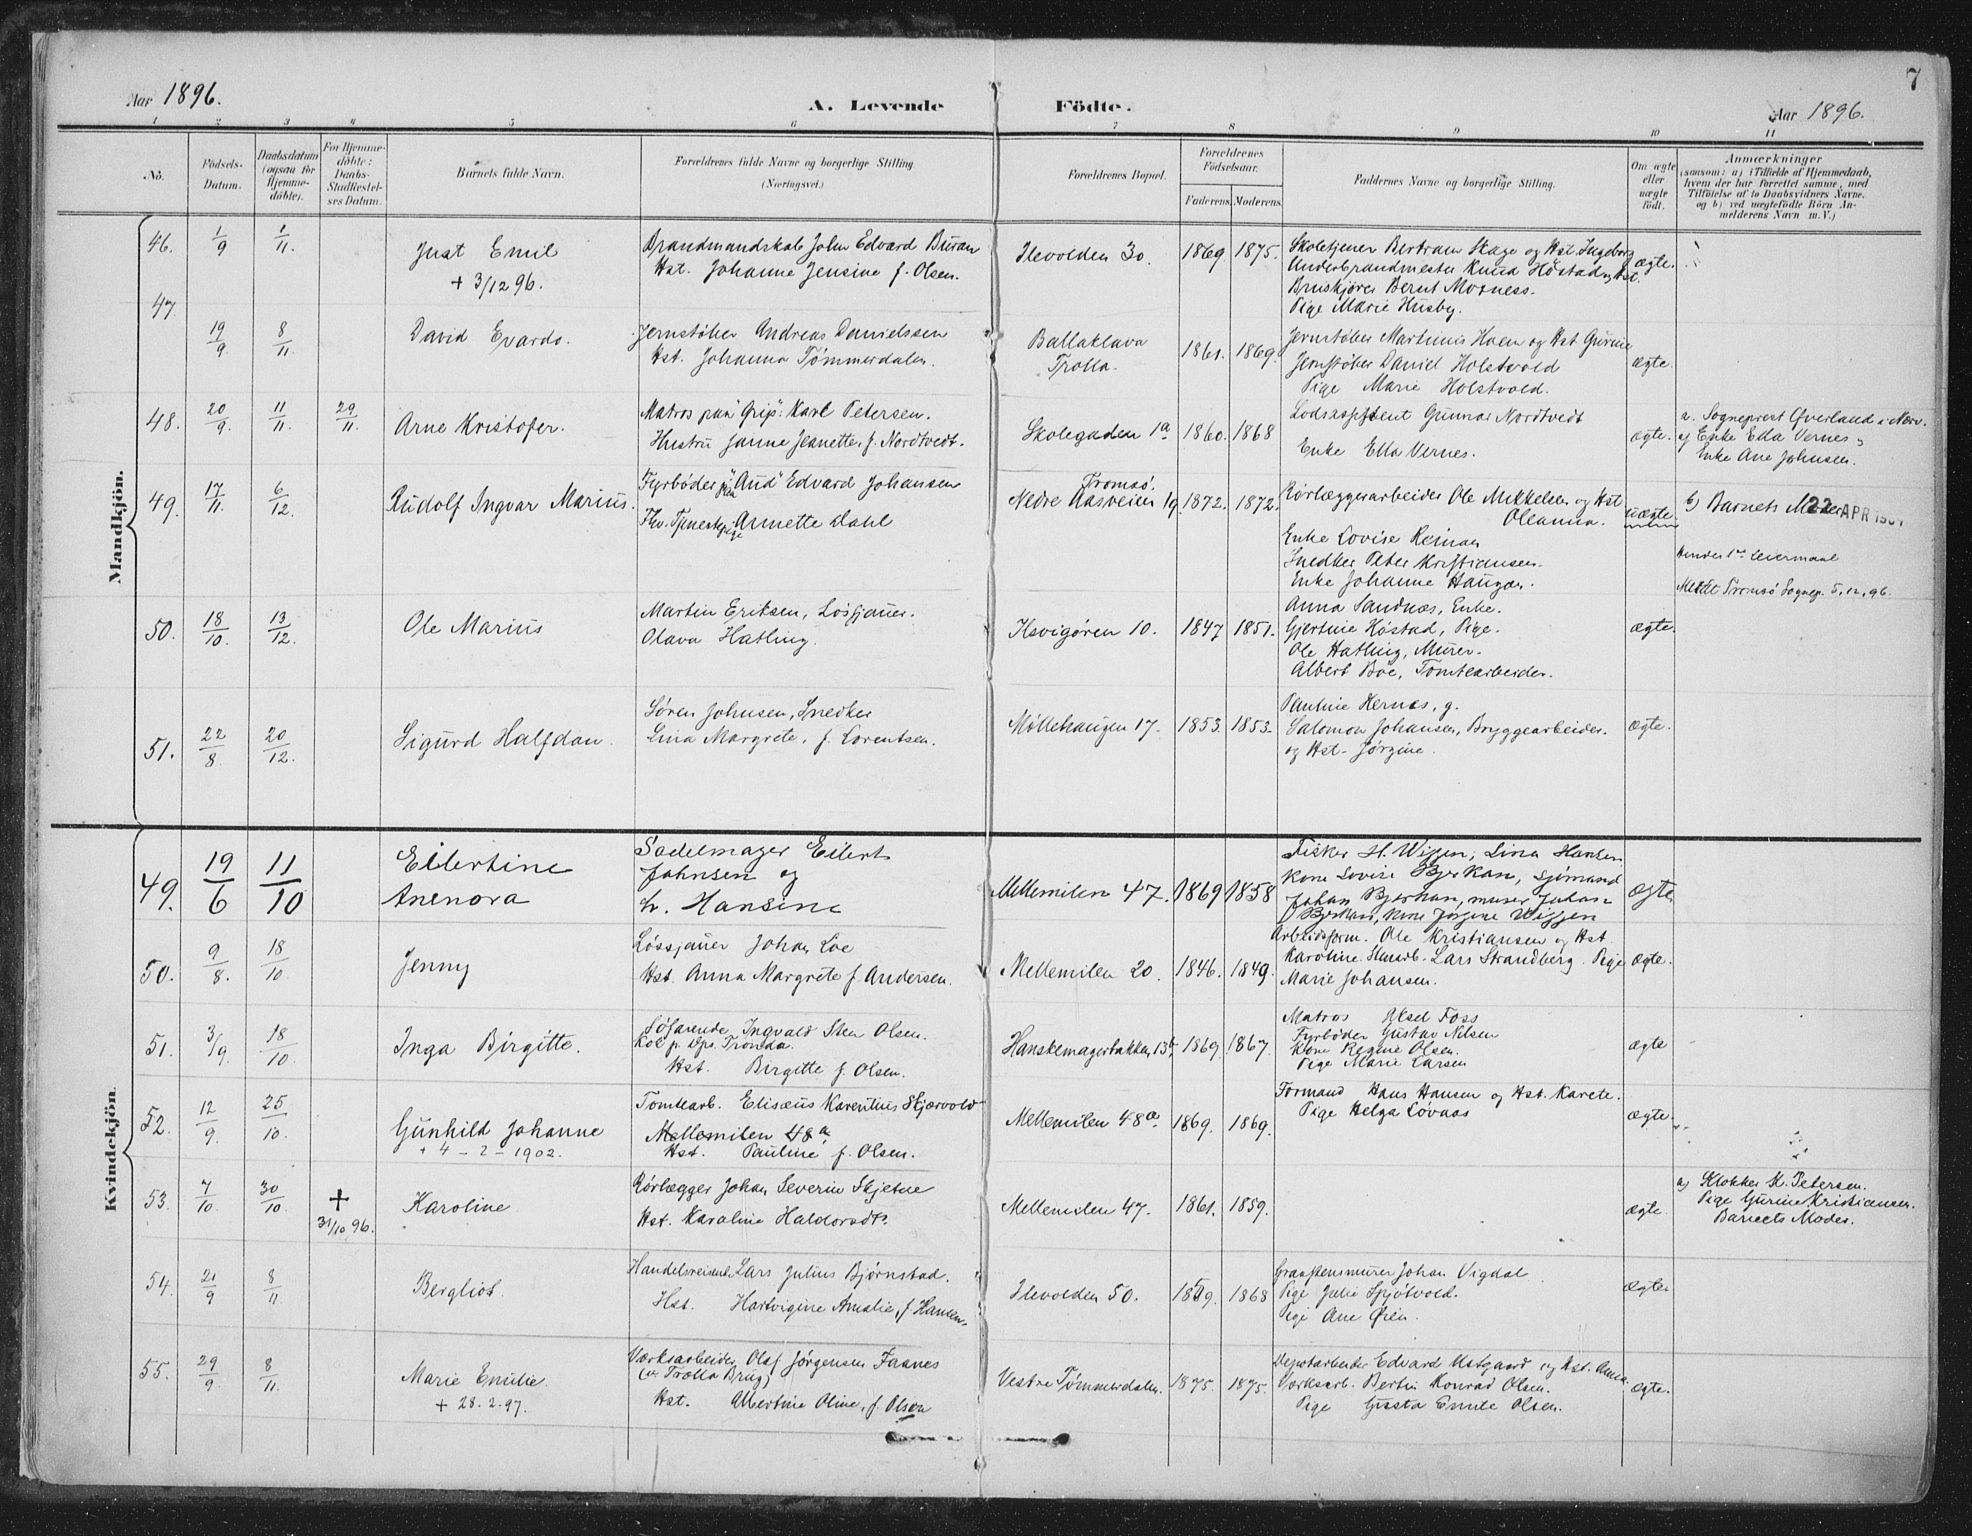 7
Aar 1896.
A. Levende Födte.
Aar 1896.
1 2 3 4 5 6 7 8 9 10 11
No.
Födsels-Datum.
Daabsdatum (ogsaa for Hjemme-döbte).
For Hjemme-döbte: Daabs-Stadfæstel-ses Datum.
Barnets fulde Navn.
Forældrenes fulde Navne og borgerlige Stilling.
(Næringsvei.)
Forældrenes Bopæl.
Forældrenes Födselsaar.
Faderens. Moderens.
Faddernes Navne og borgerlige Stilling.
Om ægte eller uægte födt.
Anmærkninger
(saasom: a) i Tilfælde af Hjemmedaab,
hvem der har forrettet samme, med
Tilföielse af to Daabsvidners Navne,
og b) ved uægtefödte Börn An-
melderens Navn m. V.)
Mandkjön.
46. 1/9 1/11 Just Emil
+ 3/12 96.
Brandmandskab John Edvard Buran
Hst. Johanne Jensine f. Olsen.
Ilevolden 30. 1869. 1875.
Skoletjener Bertram Skage og Hst Ingeborg
Underbrandmester Knud Höstad og Hst.
Bruskjører Bernt Moxness.
Pige Marie Husby.
ægte.
47 19/9 8/11 David Evardo.
Jernstøber Andreas Danielssen
Hst. Johanna Tømmerdalen.
Ballaklava
Trolla. 1861. 1869.
Jernstøber Martinus Hoen og Hst Gurine
Jernstøber Daniel Holstvold
Pige Marie Holstvold.
ægte.
48. 20/9. 11/11. 29/11. Arne Kristofer.
Matros paa "Grip": Karl Petersen.
Hustru Janna Jeanette, f. Nordtvedt.
Skolegaden 1a 1860. 1868
Lodsassistent Gunnar Nordtvedt
Enke Ella Vernes.
ægte.
a. Sogneprest Øverland i Nærv.
Enke Ella Vernes
Enke Ane Johnsen.
49. 17/11. 6/12. Rudolf Ingvar Marius.
Fyrbøder paa "Aud" Edvard Johansen
Fhv. Tjenestepige Annette Dahl
Tromsö.
Nedre Aasveien 19. 1872. 1872.
Rörlæggerarbeider Ole Mikkelsen og Hst
Oleanna.
Enke Lovise Reinaas
Snedker Peter Kristiansen.
Enke Johanne Haugan.
uægte
b) Barnets Moder
22 APR 19
Hendes 1ste Leiermaal
Meldt Tromsö Sognep. 5.12.96.
50. 18/10. 13/12. Ole Marius
Martin Eriksen, Losjauer.
Olava Hatling.
Ilsvigören 10. 1847 1851.
Anna Sandnæs, Enke.
Gjertine Höstad, Pige.
Ole Hatling, Murer.
Albert Böe, Tomtearbeider.
ægte.
51. 22/8 20/12. Sigurd Halfdan.
Søren Johnsen, Snedker
Lina Margrete, f. Lorentsen.
Møllehaugen 17. 1853. 1853.
Pauline Hernæs, g.
Salomon Johansen, Bryggearbeider.
og Hst. Jørgine.
ægte.
Kvindekjön.
49. 19/6 11/10 Eilertine
Anenora
Sadelmager Eilert
Johnsen og
h. Hansine
Mellemilen 47. 1869 1858
Fisker H. Wiggen, Lina Hansen
Kone Lovise Bjerkan, Sjömand
Johan Bjerkan, murer Johan
Bjerkan, Kone Jørgine Wiggen
ægte
50. 9/8. 18/10. Jenny
Løssjauer Johan Löe
Hst. Anna Margrete f. Andersen.
Mellemilen 20. 1846. 1849.
Arbeidsform. Ole Kristiansen og Hst.
Karoline. Husarb. Lars Strandberg. Pige
Marie Johansen.
ægte.
51. 3/9 18/10. Inga Birgitte.
Søfarende Ingvald Sten Olsen.
Kok p. Dps. Tronda.
Hst. Birgitte f. Olsen.
Hanskemagerbakken 13b. 1869. 1867.
Matros Aksel Foss
Fyrbøder Gustav Nilsen
Kone Regine Olsen.
Pige Marie Larsen
ægte
52. 12/9. 25/10. Gunhild Johanne
+ 4 - 2 - 1902.
Tomtearb. Elisæus Karentius Skjærvold
Mellemilen 48a,
Hst. Pauline f. Olsen.
Mellemilen 48a. 1869. 1869.
Formand Hans Hansen og Hst. Karete.
Pige Helga Lövaas
ægte.
53. 7/10 30/10 + 31/10 96. Karoline
Rörlægger Johan Severin Skjetne
Hst. Karoline Haldorsdt.
Mellemilen 47. 1861. 1859.
ægte.
a) Klokker K. Petersen.
Pige Gurine Kristiansen.
Barnets Moder.
54. 21/9 8/11. Bergliot.
Handelsreisende Lars Julius Björnstad.
Hst. Hartvigine Amalie, f. Hansen.
Ilevolden 50. 1859. 1868
Graastensmurer Johan Vigdal
Pige Julie Spjötvold.
Pige Ane Øien.
ægte
55. 29/9 8/11. Marie Emilie.
+ 28.2.97.
Værksarbeider Olaf Jörgensen Faanes
(ved Trolla Brug)
Hst. Albertine Oline, f. Olsen
Vestre Tømmerdalen. 1875. 1875.
Depotarbeider Edvard Ustgaard og Hst. Anna.
Værksarb. Bertin Konrad Olsen.
Pige Gusta Emilie Olsen.
ægte.